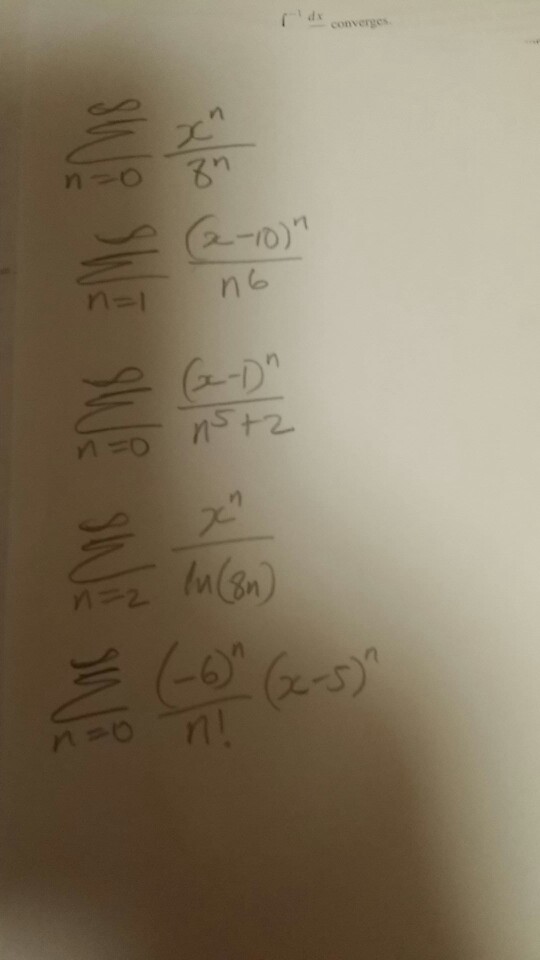 ∫^{-1} dx/ converges.
∑_{n=0}^{∞} x^n/8^n
∑_{n=1}^{∞} (x-10)^n/n6
∑_{n=0}^{∞} (x-1)^n/(n^5+2)
∑_{n=2}^{∞} x^n/ln(8n)
∑_{n=0}^{∞} (-6)^n/n! (x-5)^n